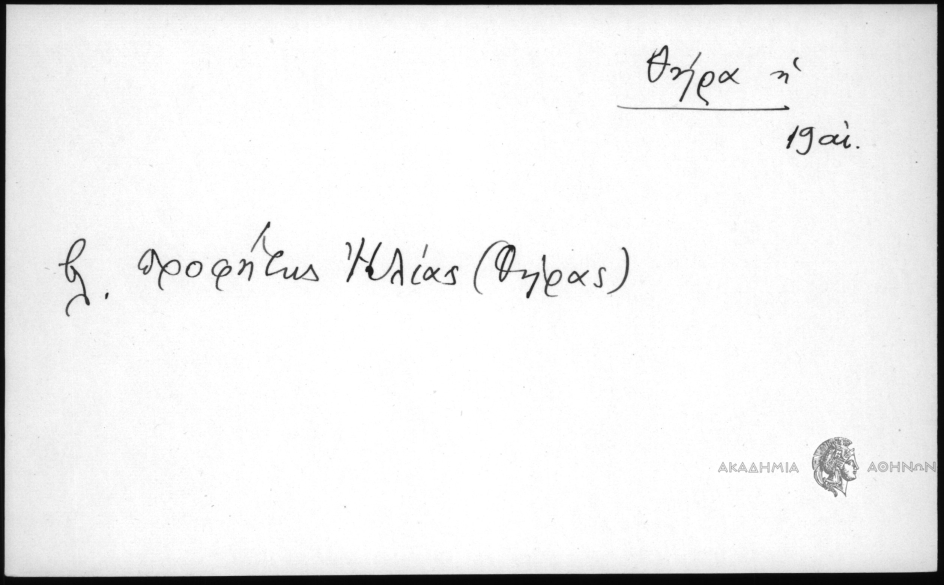 Θήρα ἡ
19 αἰ.
βλ. Προφήτης Ἠλίας (Θήρας)
ΑΚΑΔΗΜΙΑ ΑΘΗΝΩΝ